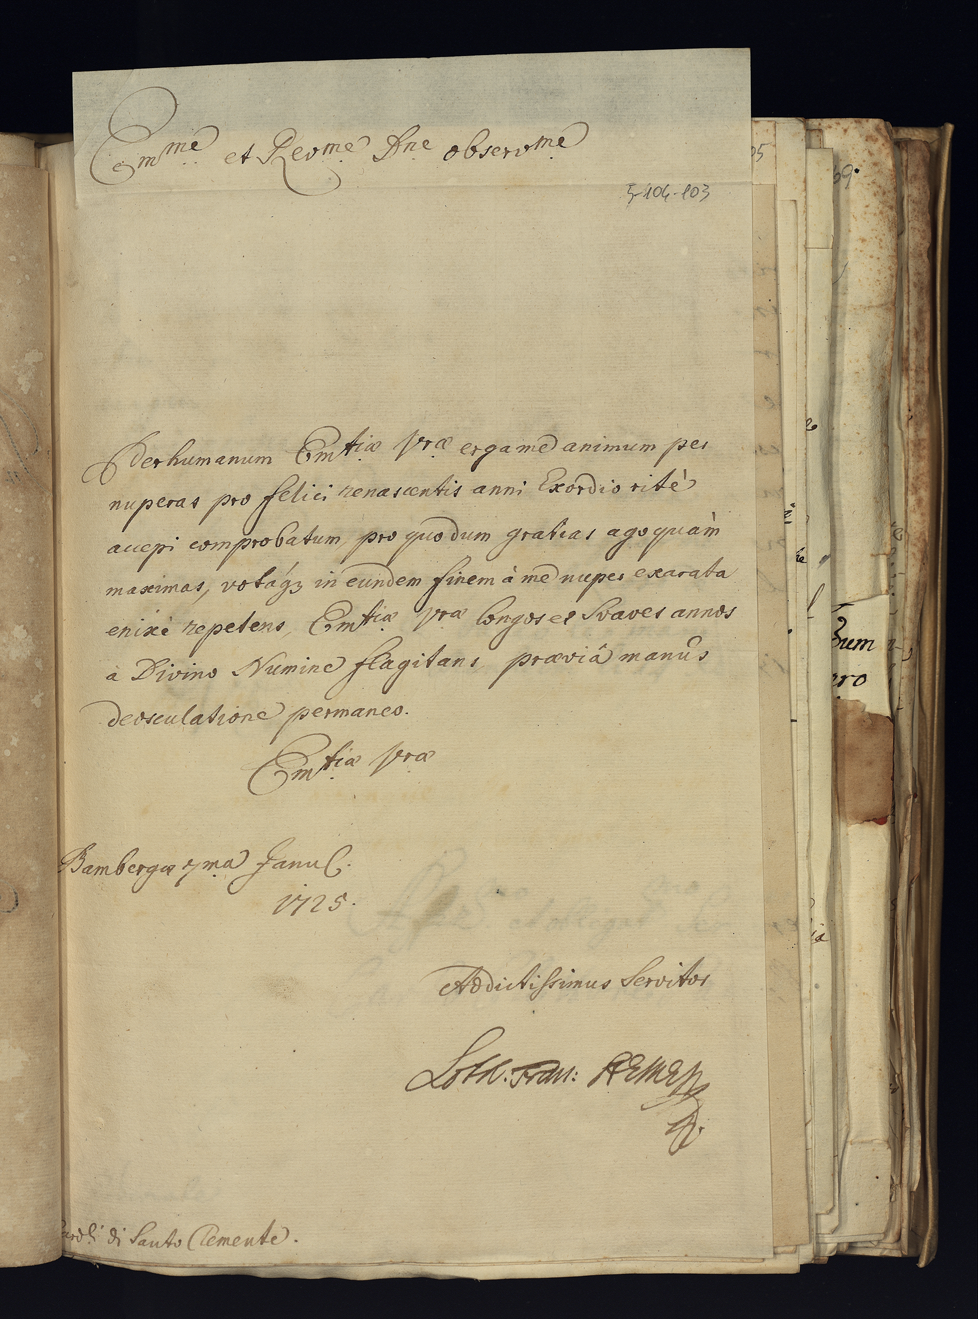 Em.me et Revme Dne observme
5-104-103
Perhumanum Emtiæ Vræ erga me animum per
nuperas pro felici renascentis anni Exordio ritè
accepi comprobatum, pro quo dum gratias ago quàm
maximas, votáq3 in eundem finem à me nuper exarata
enixè repetens, Emtiæ Vræ longos et Suaves annos
à Divino Numine flagitans præviâ manûs
deosculatione permaneo.
Emtiæ Vræ
Bambergæ 7ma Janu
1725.
Addictissimus Servitor
Loth. Fran:
di Santo Clemente.